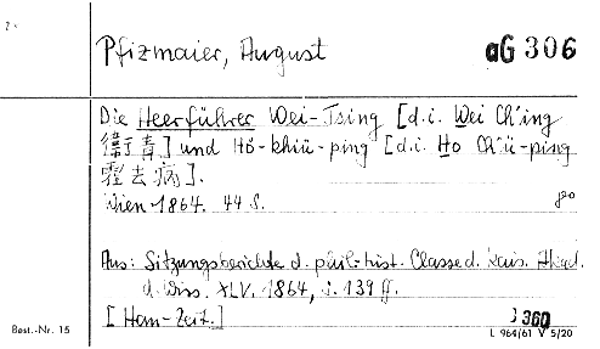 Pfizmaier, August
aG 306
Die Heerführer Wei-Tsing [d.i. Wei Ch'ing
衛青] und Hŏ-khiü-ping [d.i. Ho Ch'ü-ping
霍去病].
Wien 1864. 44 S. 8°
Aus: Sitzungsberichte d. phil.-hist. Classe d. Kais. Akad.
d. Wiss. XLV. 1864, S. 139 ff.
[Han-Zeit.]
360
Best.-Nr. 15
L 964/61 V 5/20